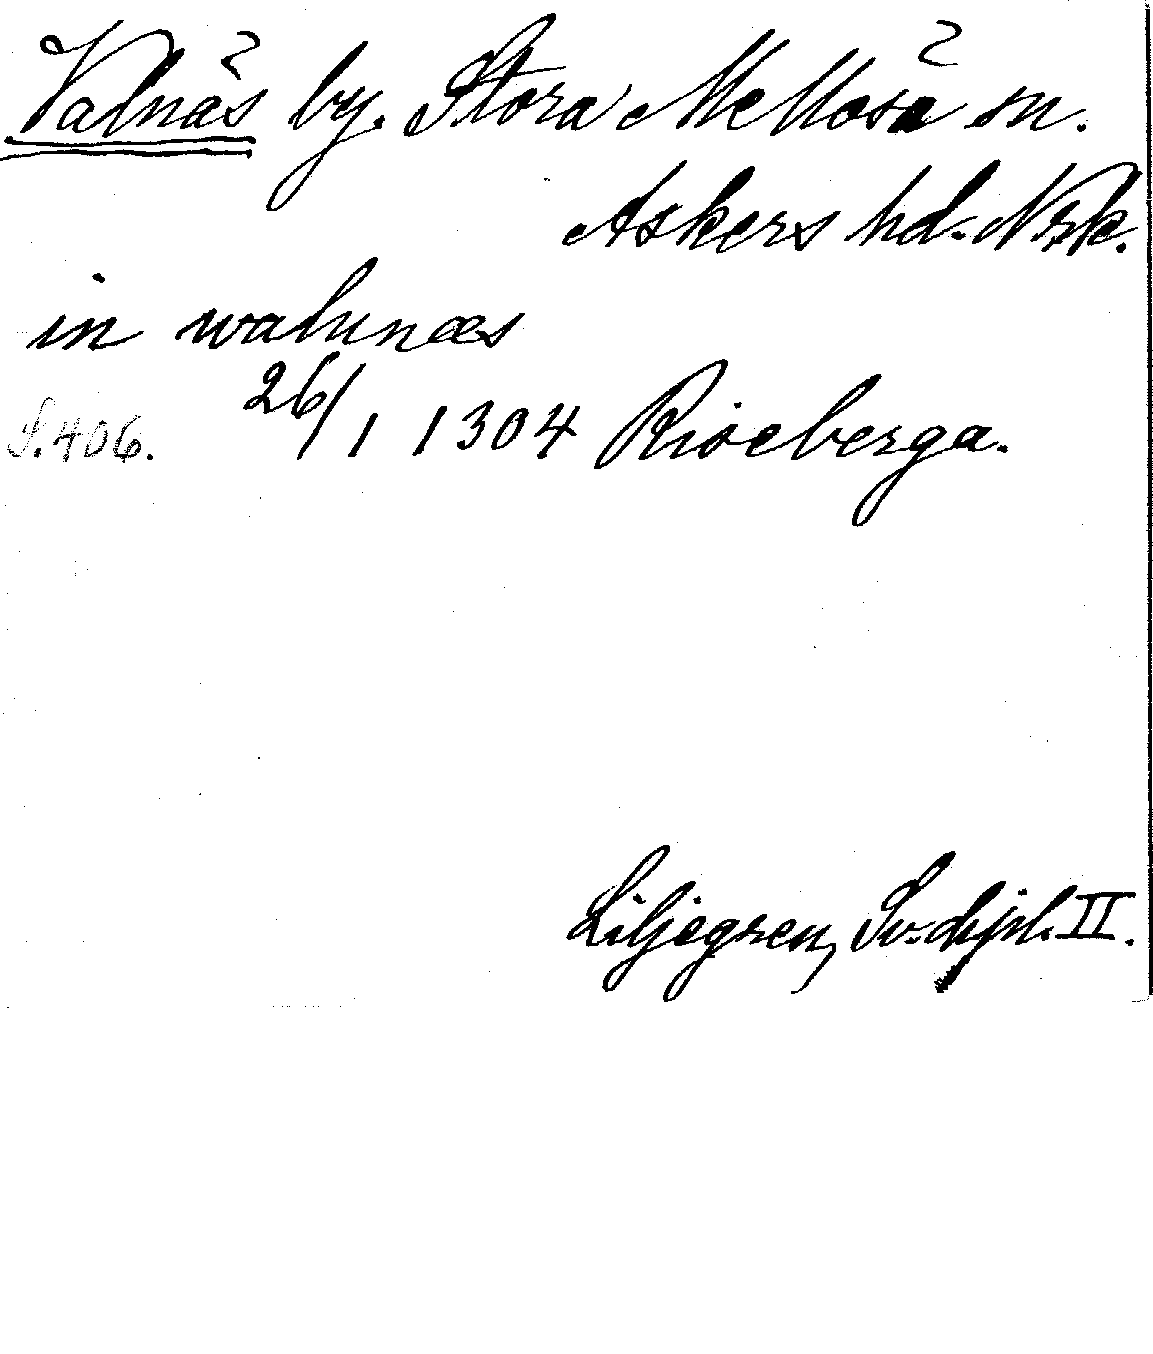 Valnäs by. Stora Mellösa sn.
Askers hd. Nrk.
in walunæs
S. 406. 26/1 1304 Riseberga.
Liljegren, Sv. dipl. II.